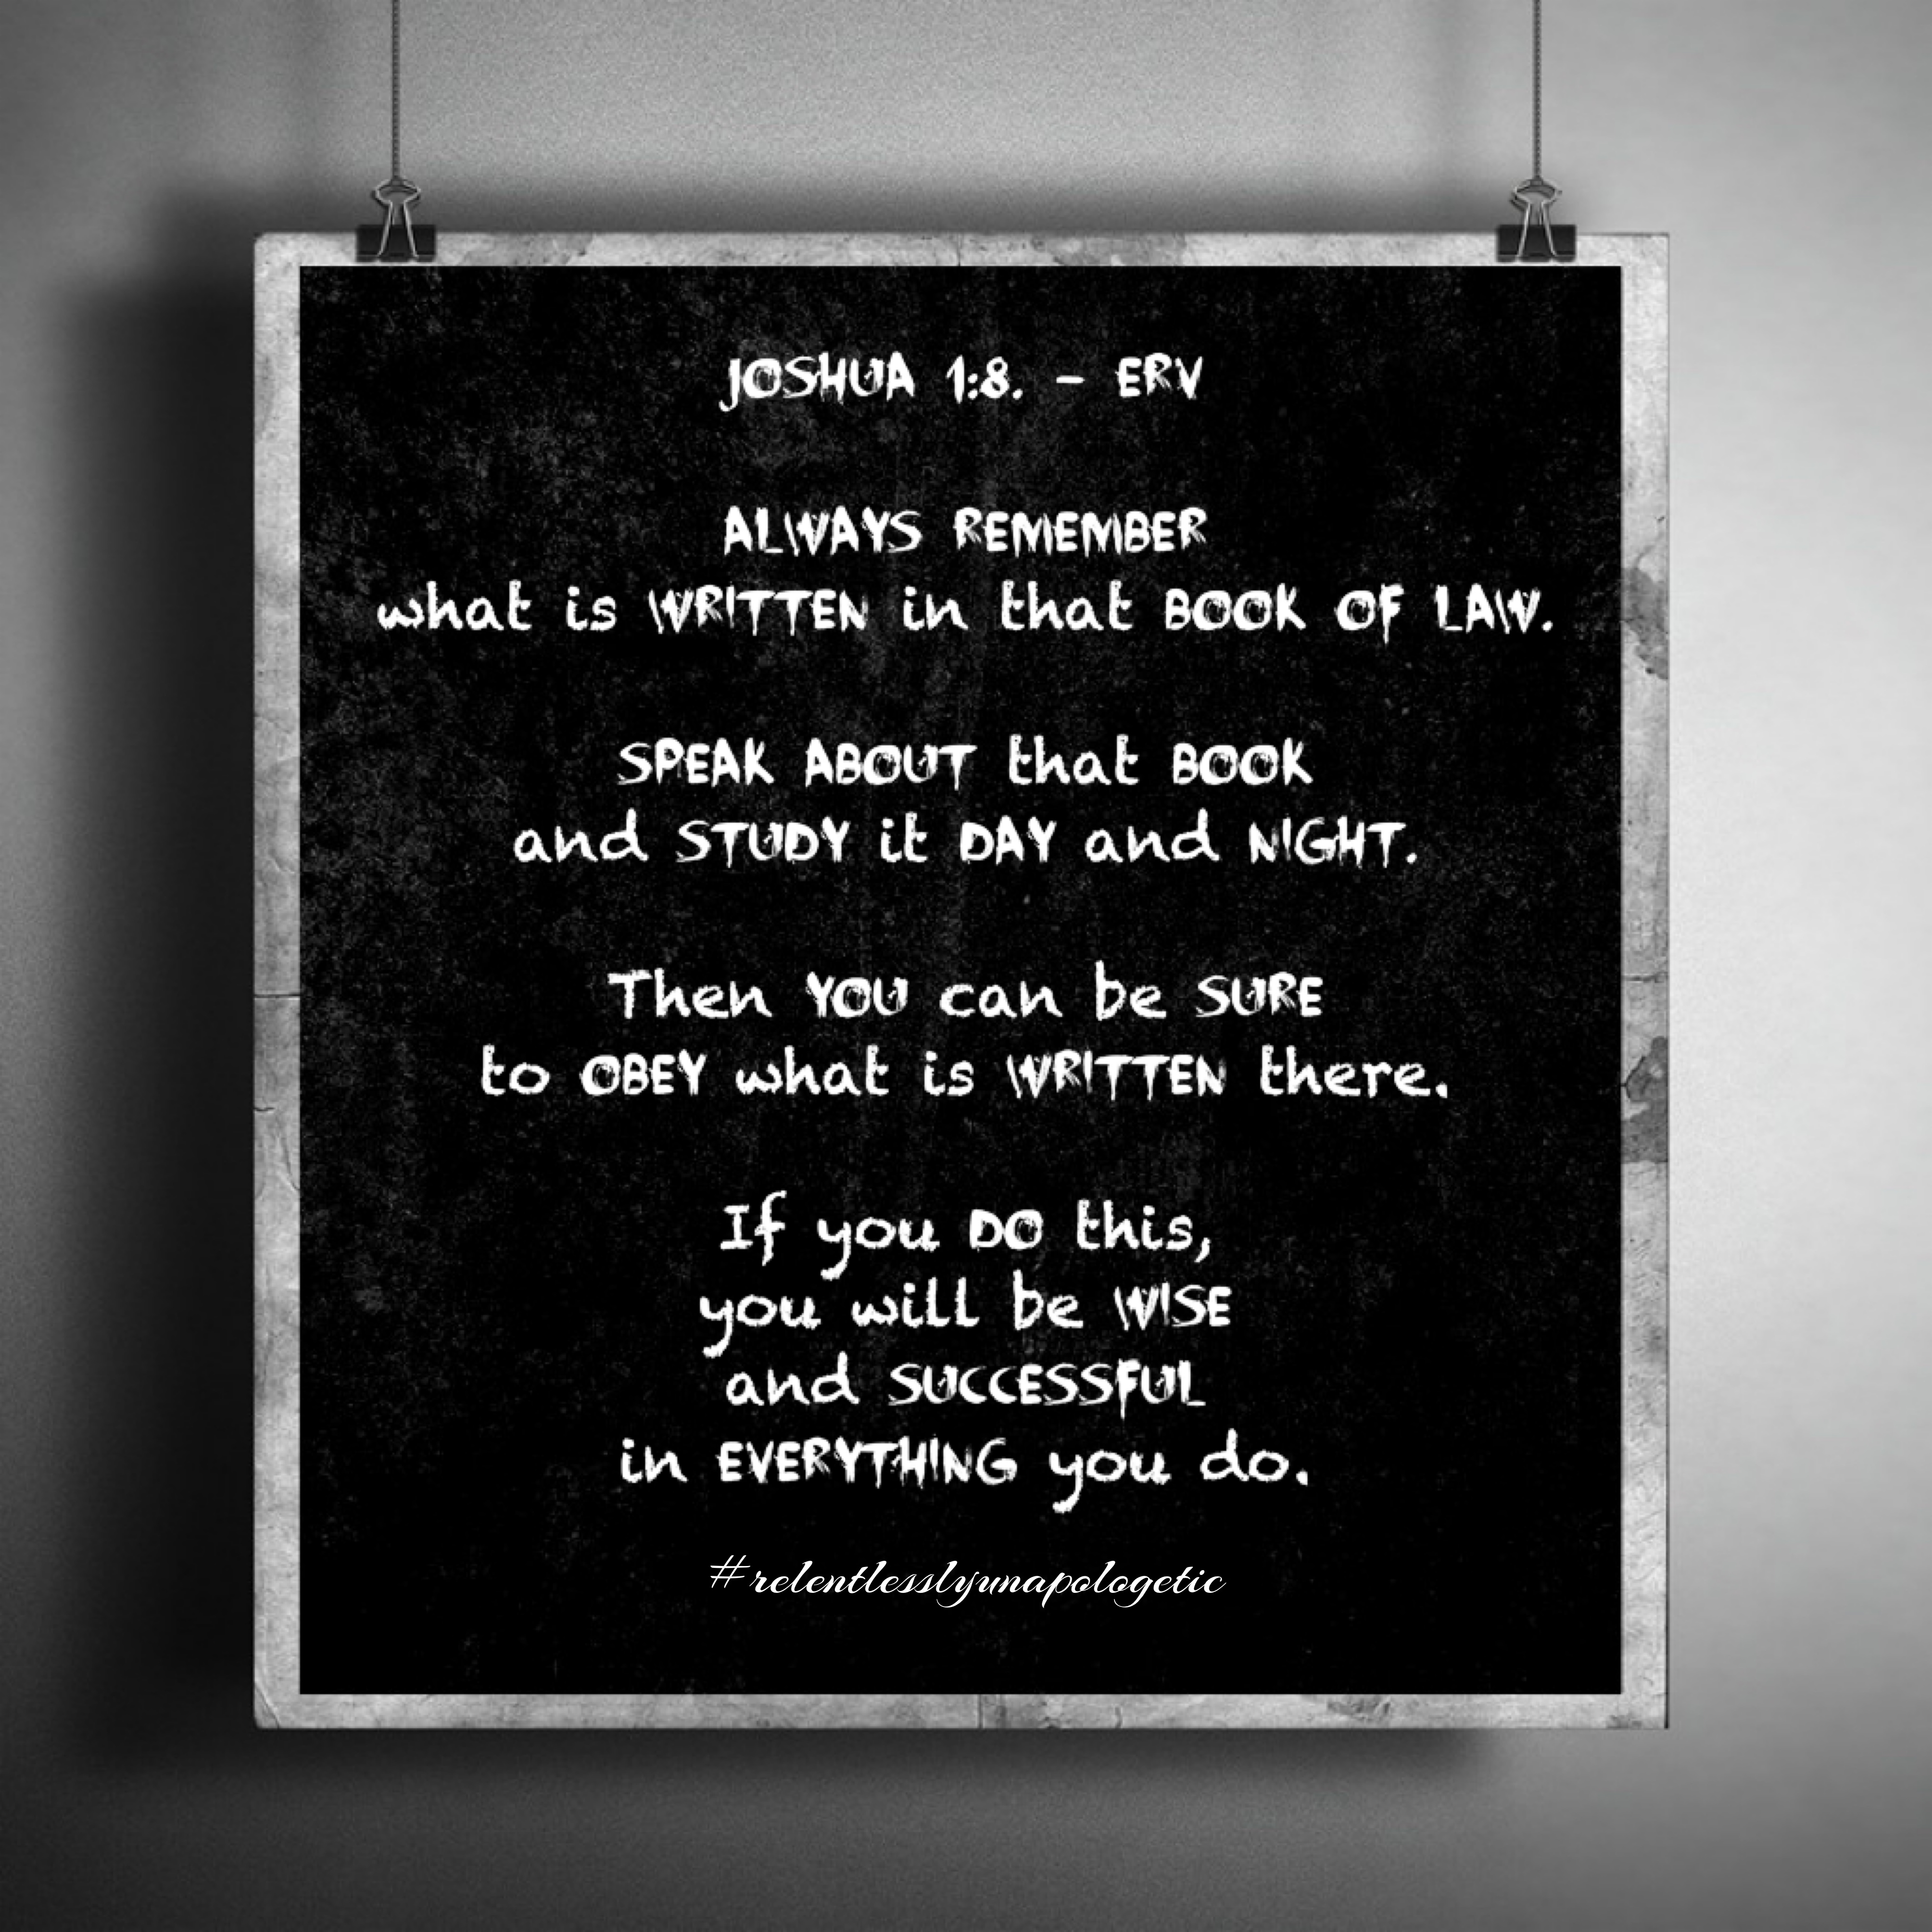 JOSHUA 1:8. - ERV
ALWAYS REMEMBER
what is WRITTEN in that BOOK OF LAW.
SPEAK ABOUT that BOOK
and STUDY it DAY and NIGHT.
Then YOU can be SURE
to OBEY what is WRITTEN there.
If you DO this,
you will be WISE
and SUCCESSFUL
in EVERYTHING you do.
#relentlesslyunapologetic